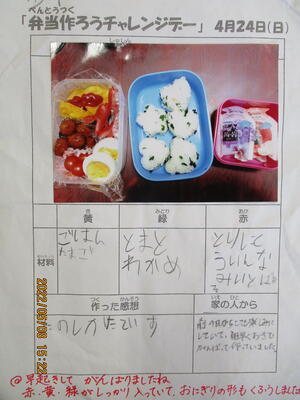 べんとうつく
「弁当作ろうチャレンジデー」 4月24日(日)
しゃしん
き
黄
みどり
緑
あか
赤
ざいりょう
材料
ごはん
たまご
とまと
わかめ
とりにく
ういんな
みいとぼ
つく かんそう
作った感想
いえ ひと
家の人から
たのしかたです
前の日からとても楽しみに
していて、朝早くおきて
がんばって作っていました。
@早起きして がんばりましたね
赤、黄、緑がしっかり入っていて、おにぎりの形もくふうしました